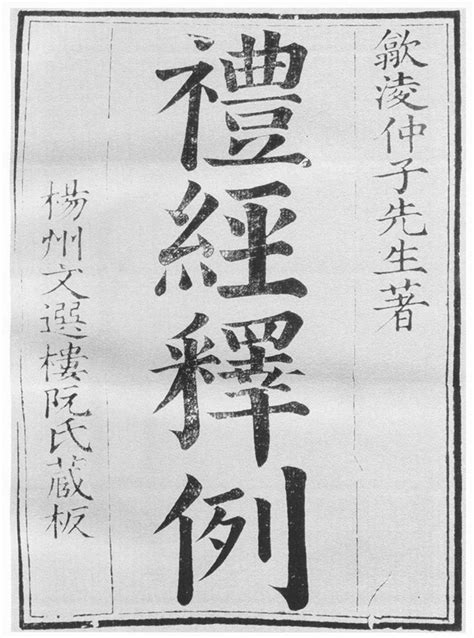 歙淩仲子先生著
禮經釋例
楊州文選樓阮氏藏板